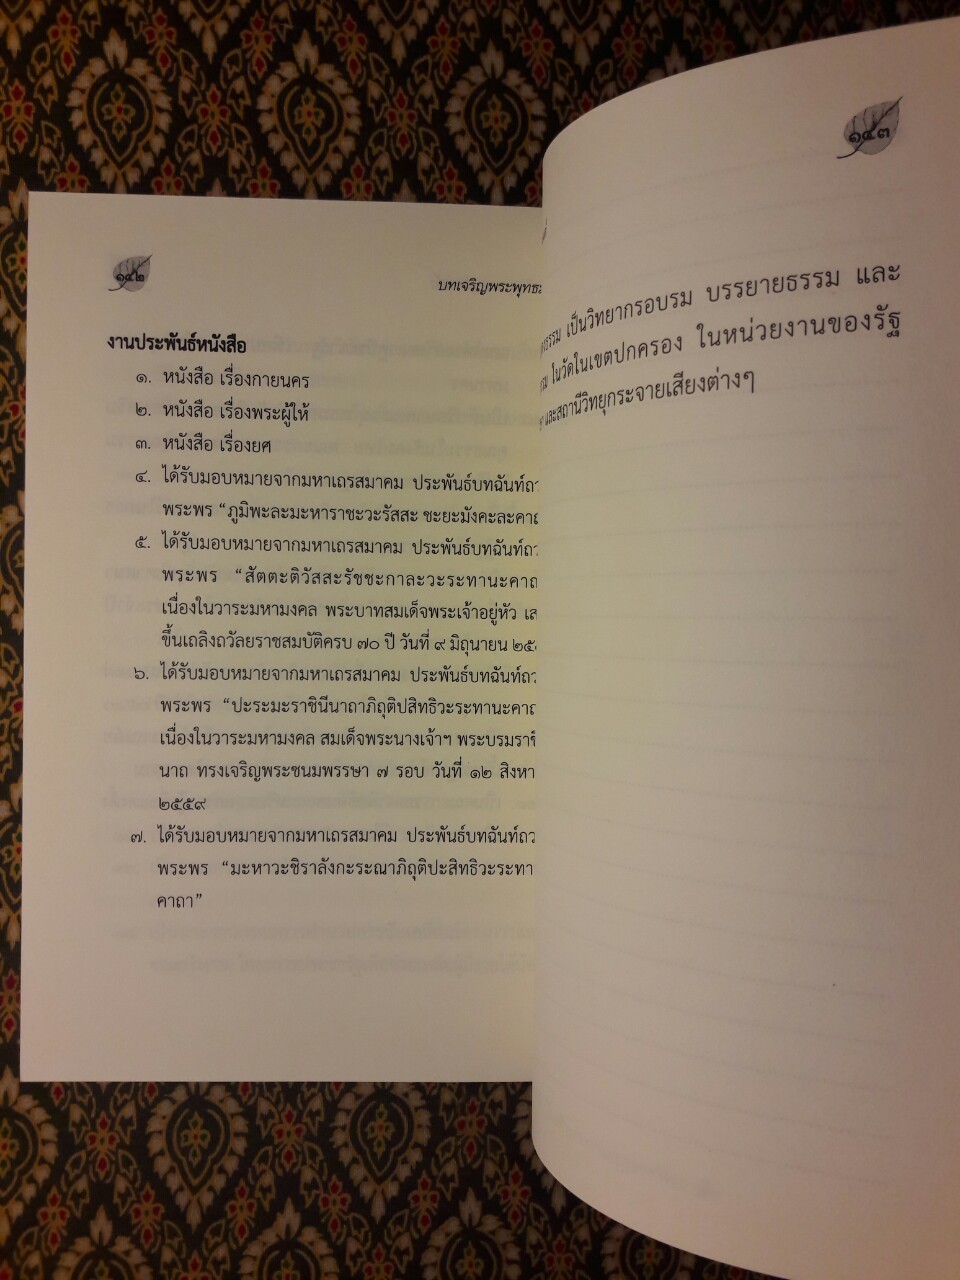 ๑๔๒
บทเจริญพระพุทธ
งานประพันธ์หนังสือ
๑. หนังสือ เรื่องกายนคร
๒. หนังสือ เรื่องพระผู้ให้
๓. หนังสือ เรื่องยศ
๔. ได้รับมอบหมายจากมหาเถรสมาคม ประพันธ์บทฉันท์ถ
พระพร “ภูมิพะละมะหาราชะวะรัสสะ ชะยะมังคะละคา
๕. ได้รับมอบหมายจากมหาเถรสมาคม ประพันธ์บทฉันท์ถ
พระพร “สัตตะติวัสสะรัชชะกาละวะระทานะคา
เนื่องในวาระมหามงคล พระบาทสมเด็จพระเจ้าอยู่หัว เส
ขึ้นเถลิงถวัลยราชสมบัติครบ ๗๐ ปี วันที่ ๙ มิถุนายน ๒๕
๖. ได้รับมอบหมายจากมหาเถรสมาคม ประพันธ์บทฉันท์ถว
พระพร “ปะระมะราชินีนาถาภิถุติปสิทธิวะระทานะคา
เนื่องในวาระมหามงคล สมเด็จพระนางเจ้าฯ พระบรมราชิ
นาถ ทรงเจริญพระชนมพรรษา ๗ รอบ วันที่ ๑๒ สิงหา
๒๕๕๙
๗. ได้รับมอบหมายจากมหาเถรสมาคม ประพันธ์บทฉันท์ถว
พระพร “มะหาวะชิราลังกะระณาภิถุติปะสิทธิวะระทา
คาถา”
๑๔๓
ธรรม เป็นวิทยากรอบรม บรรยายธรรม และ
รม ในวัดในเขตปกครอง ในหน่วยงานของรัฐ
และสถานีวิทยุกระจายเสียงต่างๆ